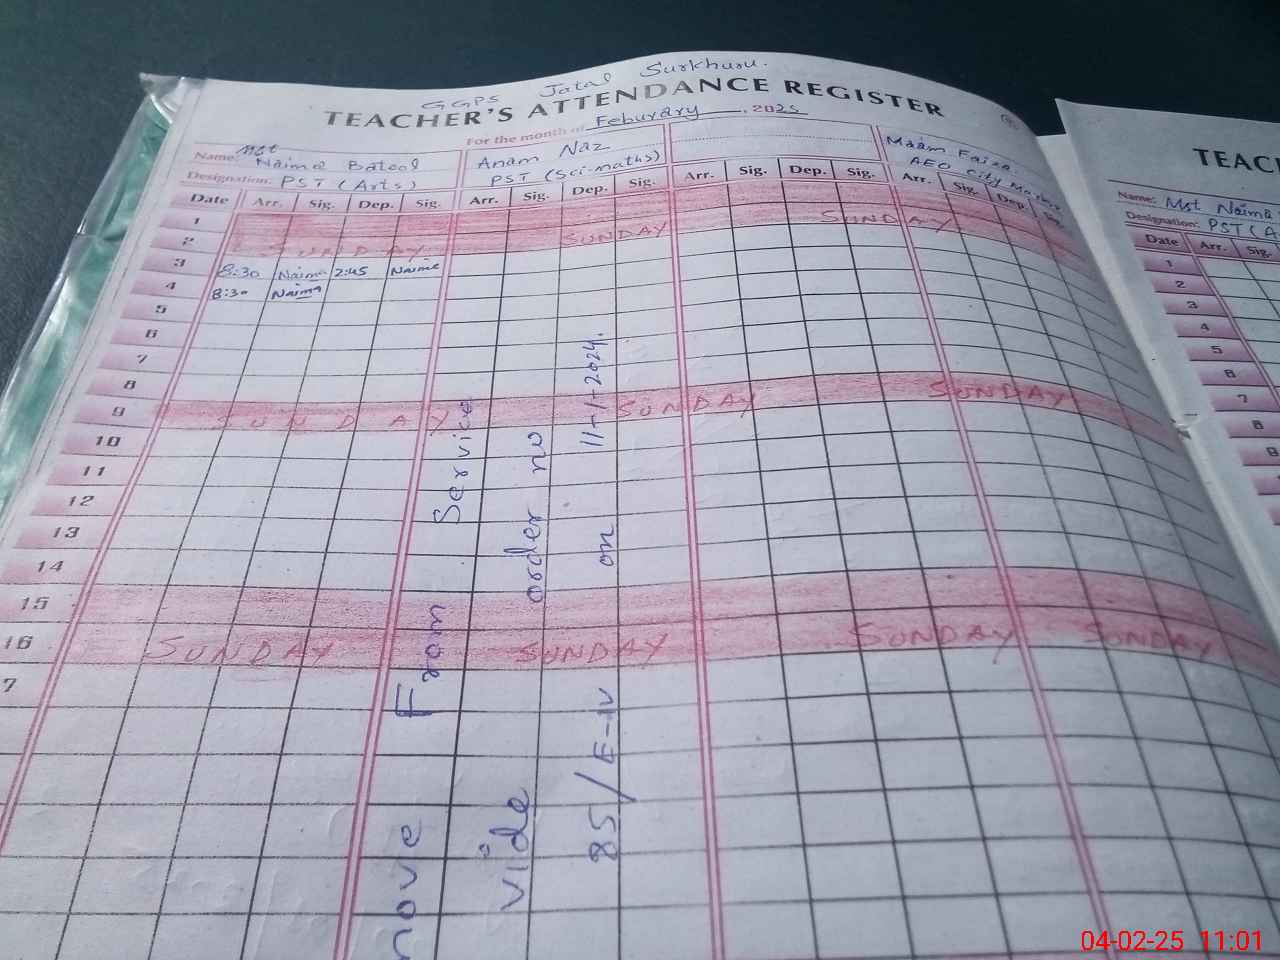 GGPS Jatal Surkhuru.
TEACHER'S ATTENDANCE REGISTER
For the month of Feburary, 2025
Name: Mst Naima Batool Anam Naz Maam Faiza
Designation: PST (Arts) PST (Sci-maths) AEO City
Date Arr. Sig. Dep. Sig. Arr. Sig. Dep. Sig. Arr. Sig. Dep. Sig. Arr. Sig. Dep. Sig.
1
2 SUNDAY SUNDAY SUNDAY
3 8:30 Naima 2:45 Naima
4 8:30 Naima
5
6
7
8
9 SUNDAY SUNDAY SUNDAY
10
11
12
13
14
15
16 SUNDAY SUNDAY SUNDAY SUNDAY
7
move From Service
vide order no
85/E-IV on 11-1-2024.
TEAC
Name: Mst Naima
Designation: PST (A
Date Arr. Sig.
1
2
3
4
5
6
7
8
9
04-02-25 11:01